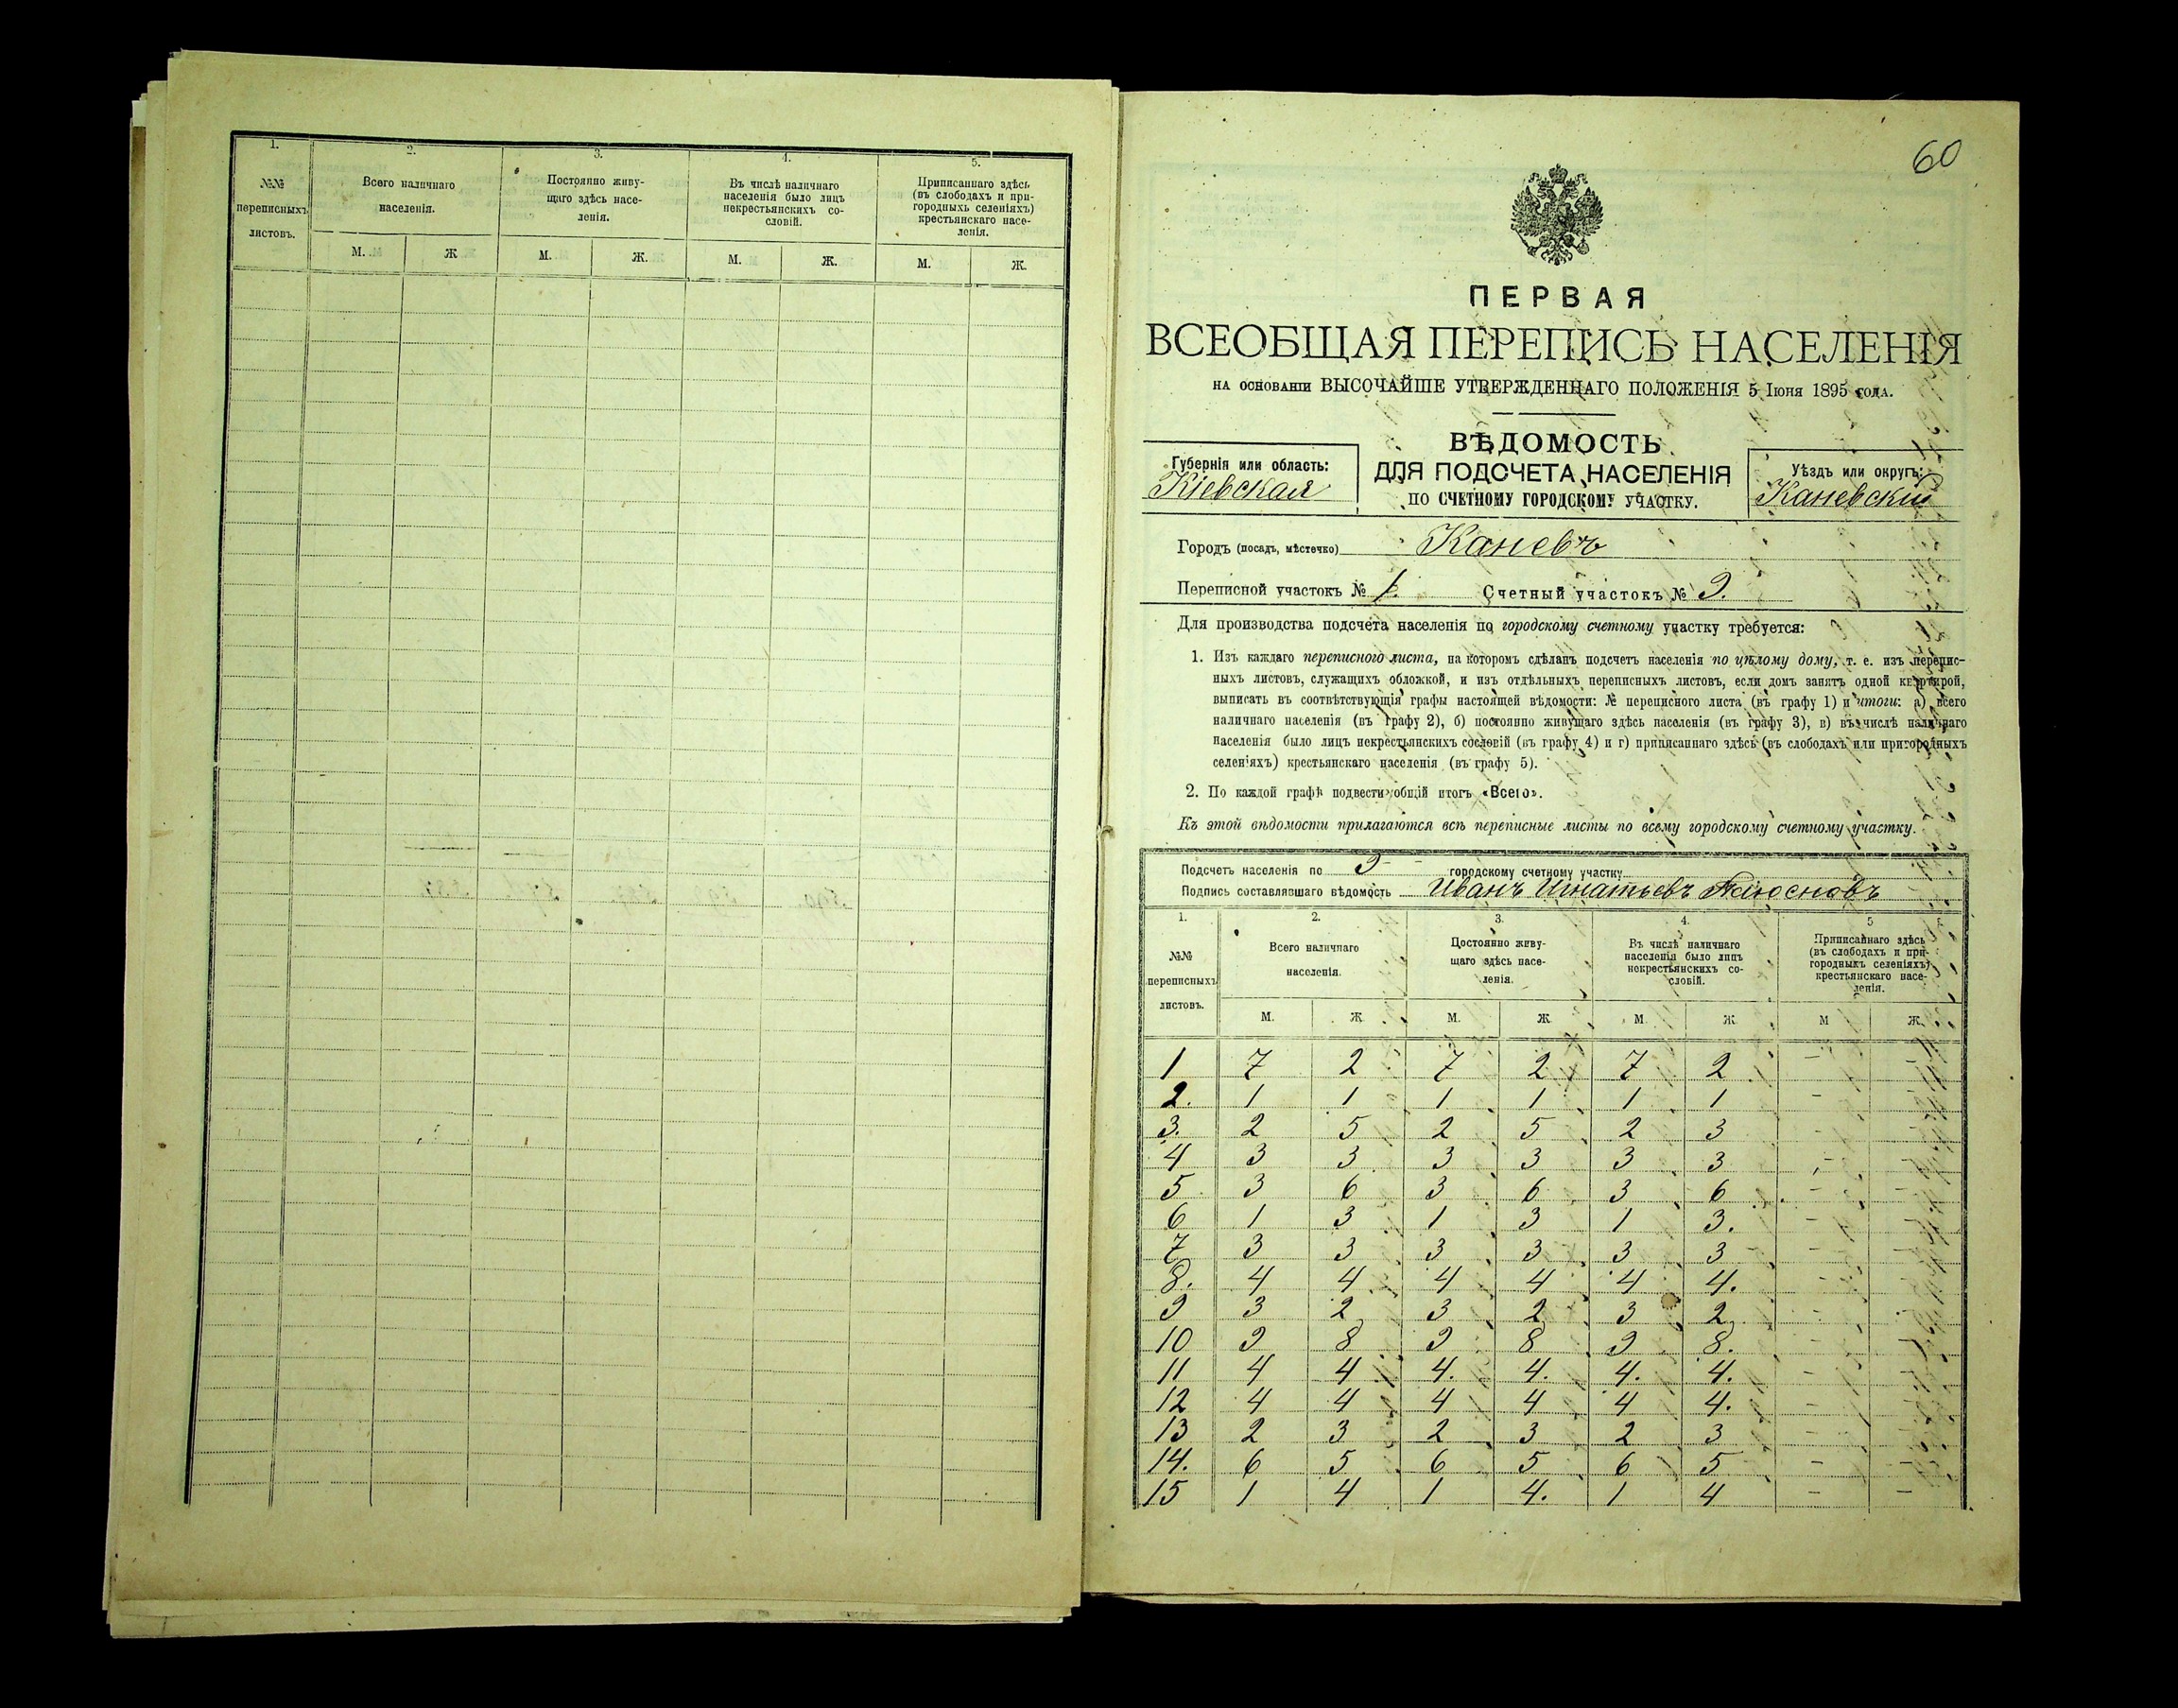 1.
№№
переписныхъ
листовъ.
2.
Всего наличнаго
населенія.
3.
Постоянно живу-
щаго здѣсь насе-
ленія.
4.
Въ числѣ наличнаго
населенія было лицъ
некрестьянскихъ со-
словій.
5.
Приписаннаго здѣсь
(въ слободахъ и при-
городныхъ селеніяхъ)
крестьянскаго насе-
ленія.
М. Ж М. Ж. М. Ж. М. Ж.
60
ПЕРВАЯ
ВСЕОБЩАЯ ПЕРЕПИСЬ НАСЕЛЕНІЯ
НА ОСНОВАНІИ ВЫСОЧАЙШЕ УТВЕРЖДЕННАГО ПОЛОЖЕНІЯ 5 Іюня 1895 года.
Губернія или область:
Кіевская
ВѢДОМОСТЬ
ДЛЯ ПОДСЧЕТА НАСЕЛЕНІЯ
ПО СЧЕТНОМУ ГОРОДСКОМУ УЧАСТКУ.
Уѣздъ или округъ:
Каневскій
Городъ (посадъ, мѣстечко) Каневъ
Переписной участокъ № 1. Счетный участокъ № 9.
Для производства подсчета населенія по городскому счетному участку требуется:
1. Изъ каждаго переписного листа, на которомъ сдѣланъ подсчетъ населенія по цѣлому дому, т. е. изъ перепис-
ныхъ листовъ, служащихъ обложкой, и изъ отдѣльныхъ переписныхъ листовъ, если домъ занятъ одной квартирой,
выписать въ соотвѣтствующія графы настоящей вѣдомости: № переписного листа (въ графу 1) и итоги: а) всего
наличнаго населенія (въ графу 2), б) постоянно живущаго здѣсь населенія (въ графу 3), в) въ числѣ наличнаго
населенія было лицъ некрестьянскихъ сословій (въ графу 4) и г) приписаннаго здѣсь (въ слободахъ или пригородныхъ
селеніяхъ) крестьянскаго населенія (въ графу 5).
2. По каждой графѣ подвести общій итогъ «Всего».
Къ этой вѣдомости прилагаются всѣ переписные листы по всему городскому счетному участку.
Подсчетъ населенія по 9 городскому счетному участку
Подпись составлявшаго вѣдомость Иванъ Игнатьевъ
1.
№№
переписныхъ
листовъ.
2.
Всего наличнаго
населенія.
3.
Постоянно живу-
щаго здѣсь насе-
ленія.
4.
Въ числѣ наличнаго
населенія было лицъ
некрестьянскихъ со-
словій.
5
Приписаннаго здѣсь
(въ слободахъ и при-
городныхъ селеніяхъ)
крестьянскаго насе-
ленія.
М. Ж М. Ж М Ж М Ж.
1 7 2 7 2 7 2 -
2. 1 1 1 1 1 1 -
3. 2 5 2 5 2 3 -
4 3 3 3 3 3 3 -
5 3 6 3 6 3 6 - -
6 1 3 1 3 1 3. -
7 3 3 3 3 3 3 -
8. 4 4 4 4 4 4. -
9 3 2 3 2 3 2 -
10 9 8 9 8 9 8. -
11 4 4 4. 4. 4. 4. -
12 4 4 4 4 4 4. -
13 2 3 2 3 2 3 -
14. 6 5 6 5 6 5 - -
15 1 4 1 4. 1 4 - -